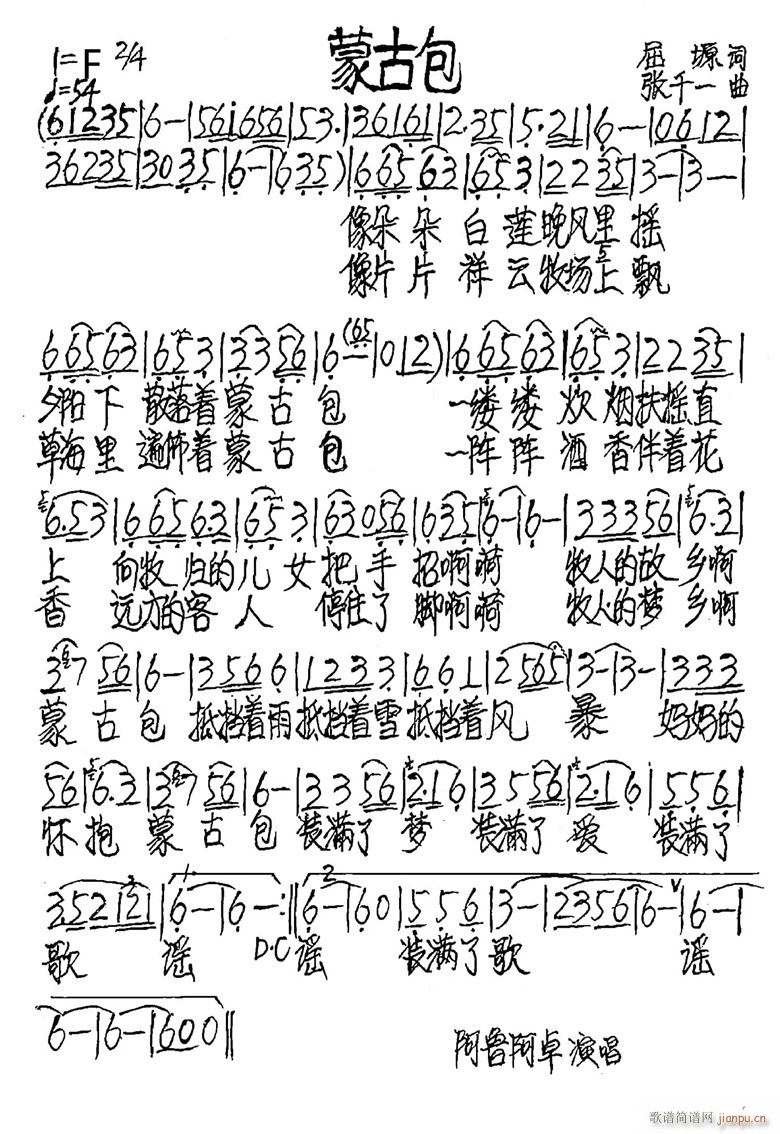 蒙古包
1=F 2/4
屈塬 词
♩=54
张千一 曲
(61235|6-|561656|53.|36161|2.35|5.21|6--|0612|
36235|3035|6-|635)|66563|653|2235|3-|3--|
像朵朵白莲晚风里摇
像片片祥云牧场上飘
66563|653|3356|6(65|012)|66563|653|2235|
夕阳下散落着蒙古包 一缕缕炊烟扶摇直
草海里遍布着蒙古包 一阵阵酒香伴着花
6.53|66563|653|63056|635|6-|6-|33356|6.3|
上 向牧归的儿女把手招啊嗬 牧人的故乡啊
香 远方的客人 停住了脚啊嗬 牧人的梦乡啊
3 7 56|6-|3566|1233|661|2565|3-|3-|333
蒙古包 抵挡着雨抵挡着雪抵挡着风暴 妈妈的
56|6.3|3 7 56|6-|3356|2.16|3556|2.16|556|
怀抱蒙古包 装满了梦 装满了爱 装满了
1. 2.
3.52121|6-|6-:||6-|660|556|3-|2356|6-|6-|
歌 谣 D.C 谣 装满了歌 谣
6-|6-|600||
阿鲁阿卓演唱
歌谱简谱网
jianpu.cn